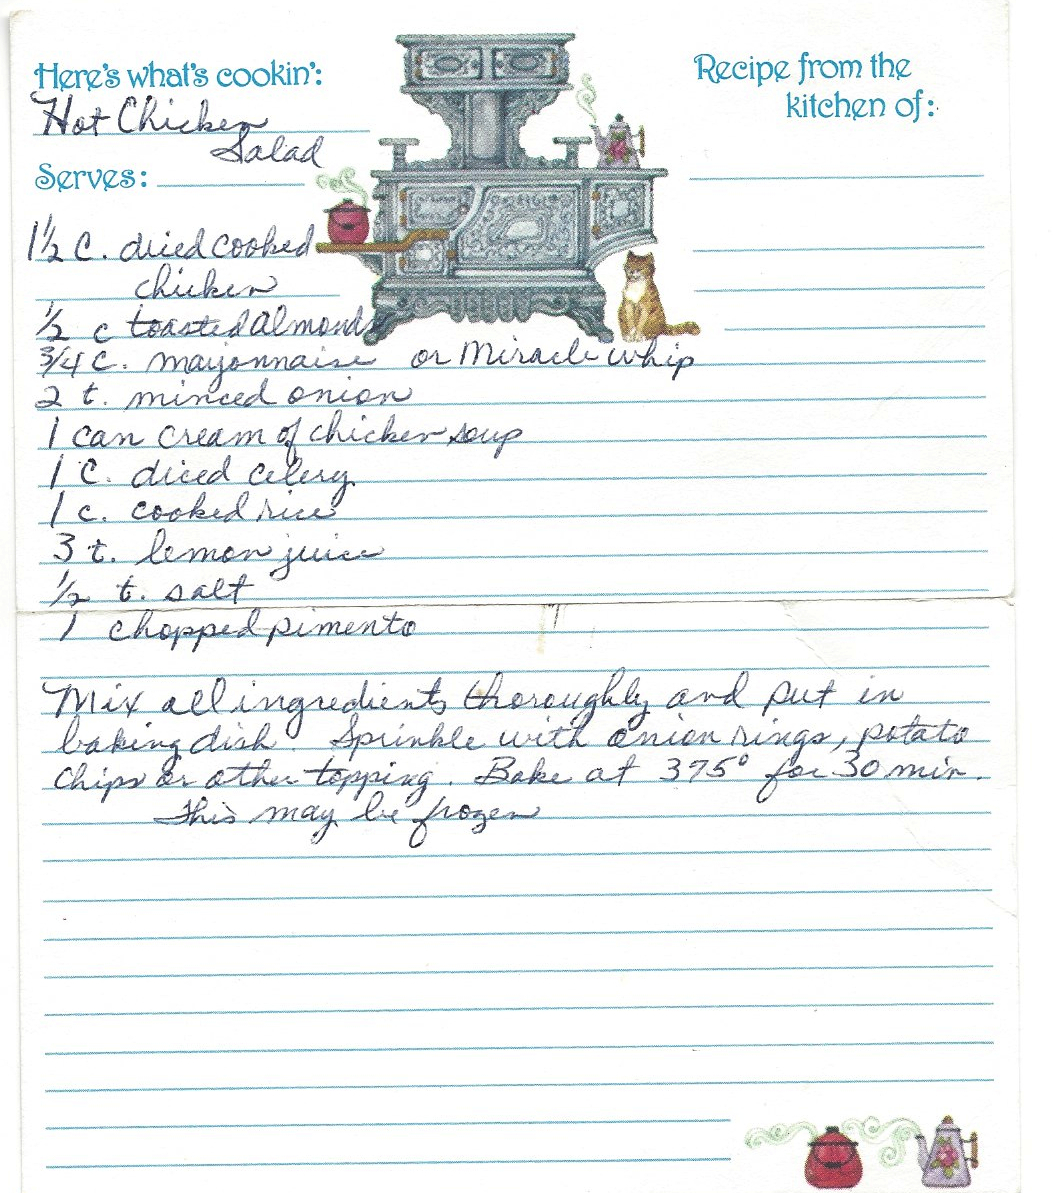 Here's what's cookin':
Recipe from the
kitchen of:
Hot Chicken
Salad
Serves:
1 1/2 C. diced cooked
chicken
1/2 c toasted almonds
3/4 C. mayonnaise or Miracle whip
2 t. minced onion
1 can cream of chicken soup
1 C. diced celery
1 c. cooked rice
3 t. lemon juice
1/2 t. salt
1 chopped pimento
Mix all ingredients thoroughly and put in
baking dish. Sprinkle with onion rings, potato
chips or other topping. Bake at 375° for 30 min.
This may be frozen